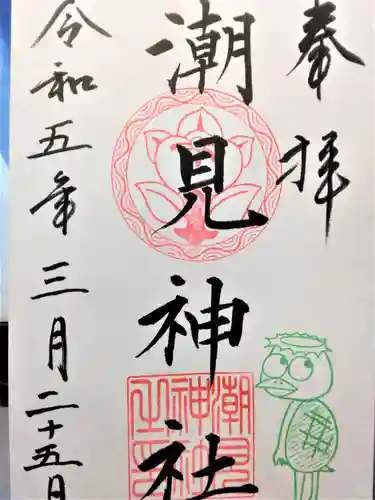 奉拝
潮見神社
令和五年三月二十五日
潮見
神社
之印